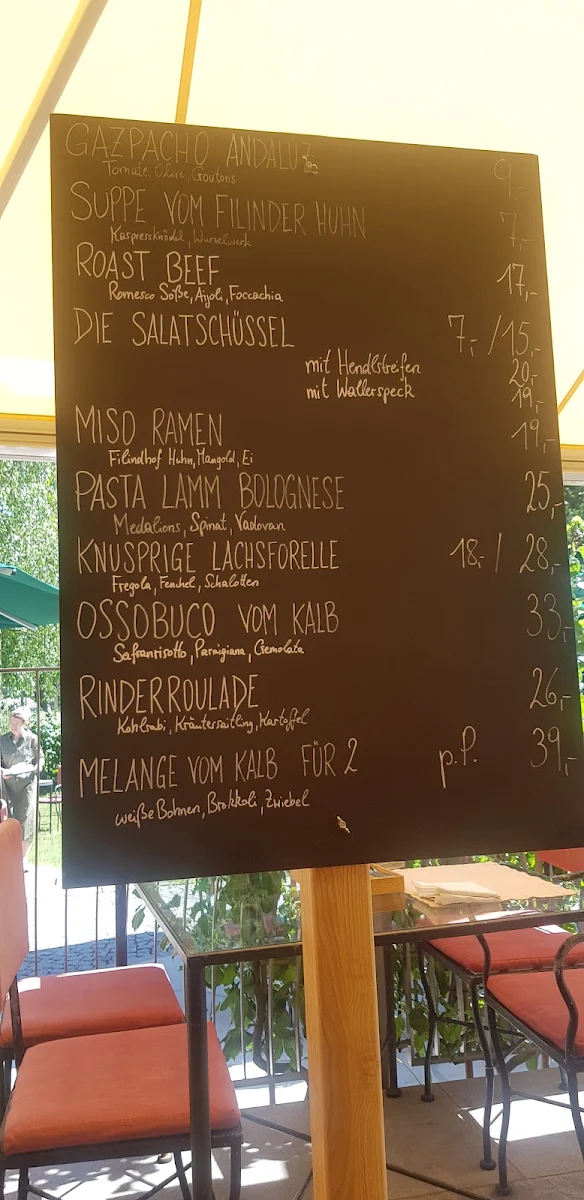 GAZPACHO ANDALUZ 9,-
Tomate, Olive, Croutons
SUPPE VOM FILINDER HUHN 7,-
Kaspressknödel, Wurzelwerk
ROAST BEEF 17,-
Romesco Soße, Aijoli, Foccachia
DIE SALATSCHÜSSEL 7,- / 15,-
mit Hendlstreifen 20,-
mit Wallerspeck 19,-
MISO RAMEN 19,-
Filindhof Huhn, Mangold, Ei
PASTA LAMM BOLOGNESE 25,-
Medalions, Spinat, Vadovan
KNUSPRIGE LACHSFORELLE 18,- / 28,-
Fregola, Fenchel, Schalotten
OSSOBUCO VOM KALB 33,-
Safranrisotto, Parmigiana, Gremolata
RINDERROULADE 26,-
Kohlrabi, Kräutersaitling, Kartoffel
MELANGE VOM KALB FÜR 2 p.P. 39,-
weiße Bohnen, Brokkoli, Zwiebel